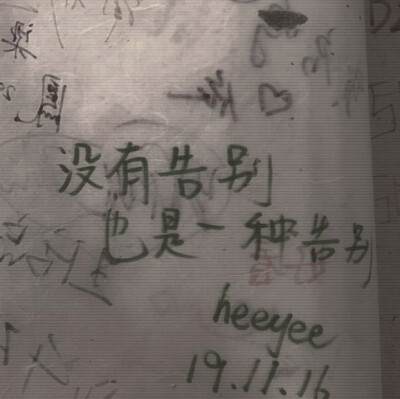 没有告别
也是一种告别
heeyee
19.11.16